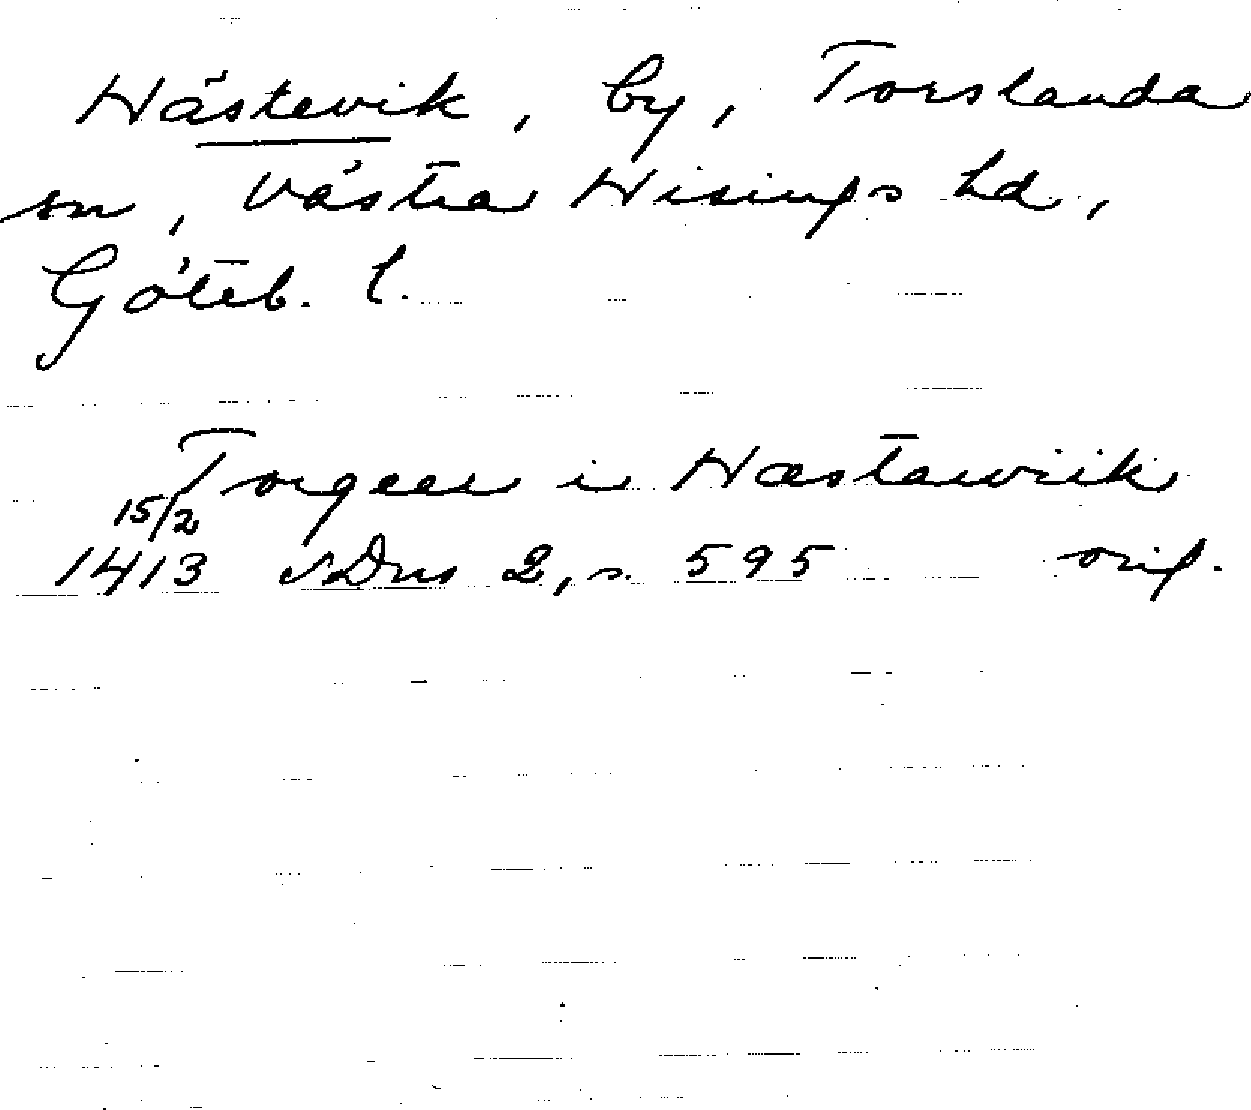 Hästevik, by, Torslanda
sn, Västra Hisings hd,
Göteb. l.
Torgeer i Hæstawiik
15/2
1413 SDns 2, s. 595 orig.